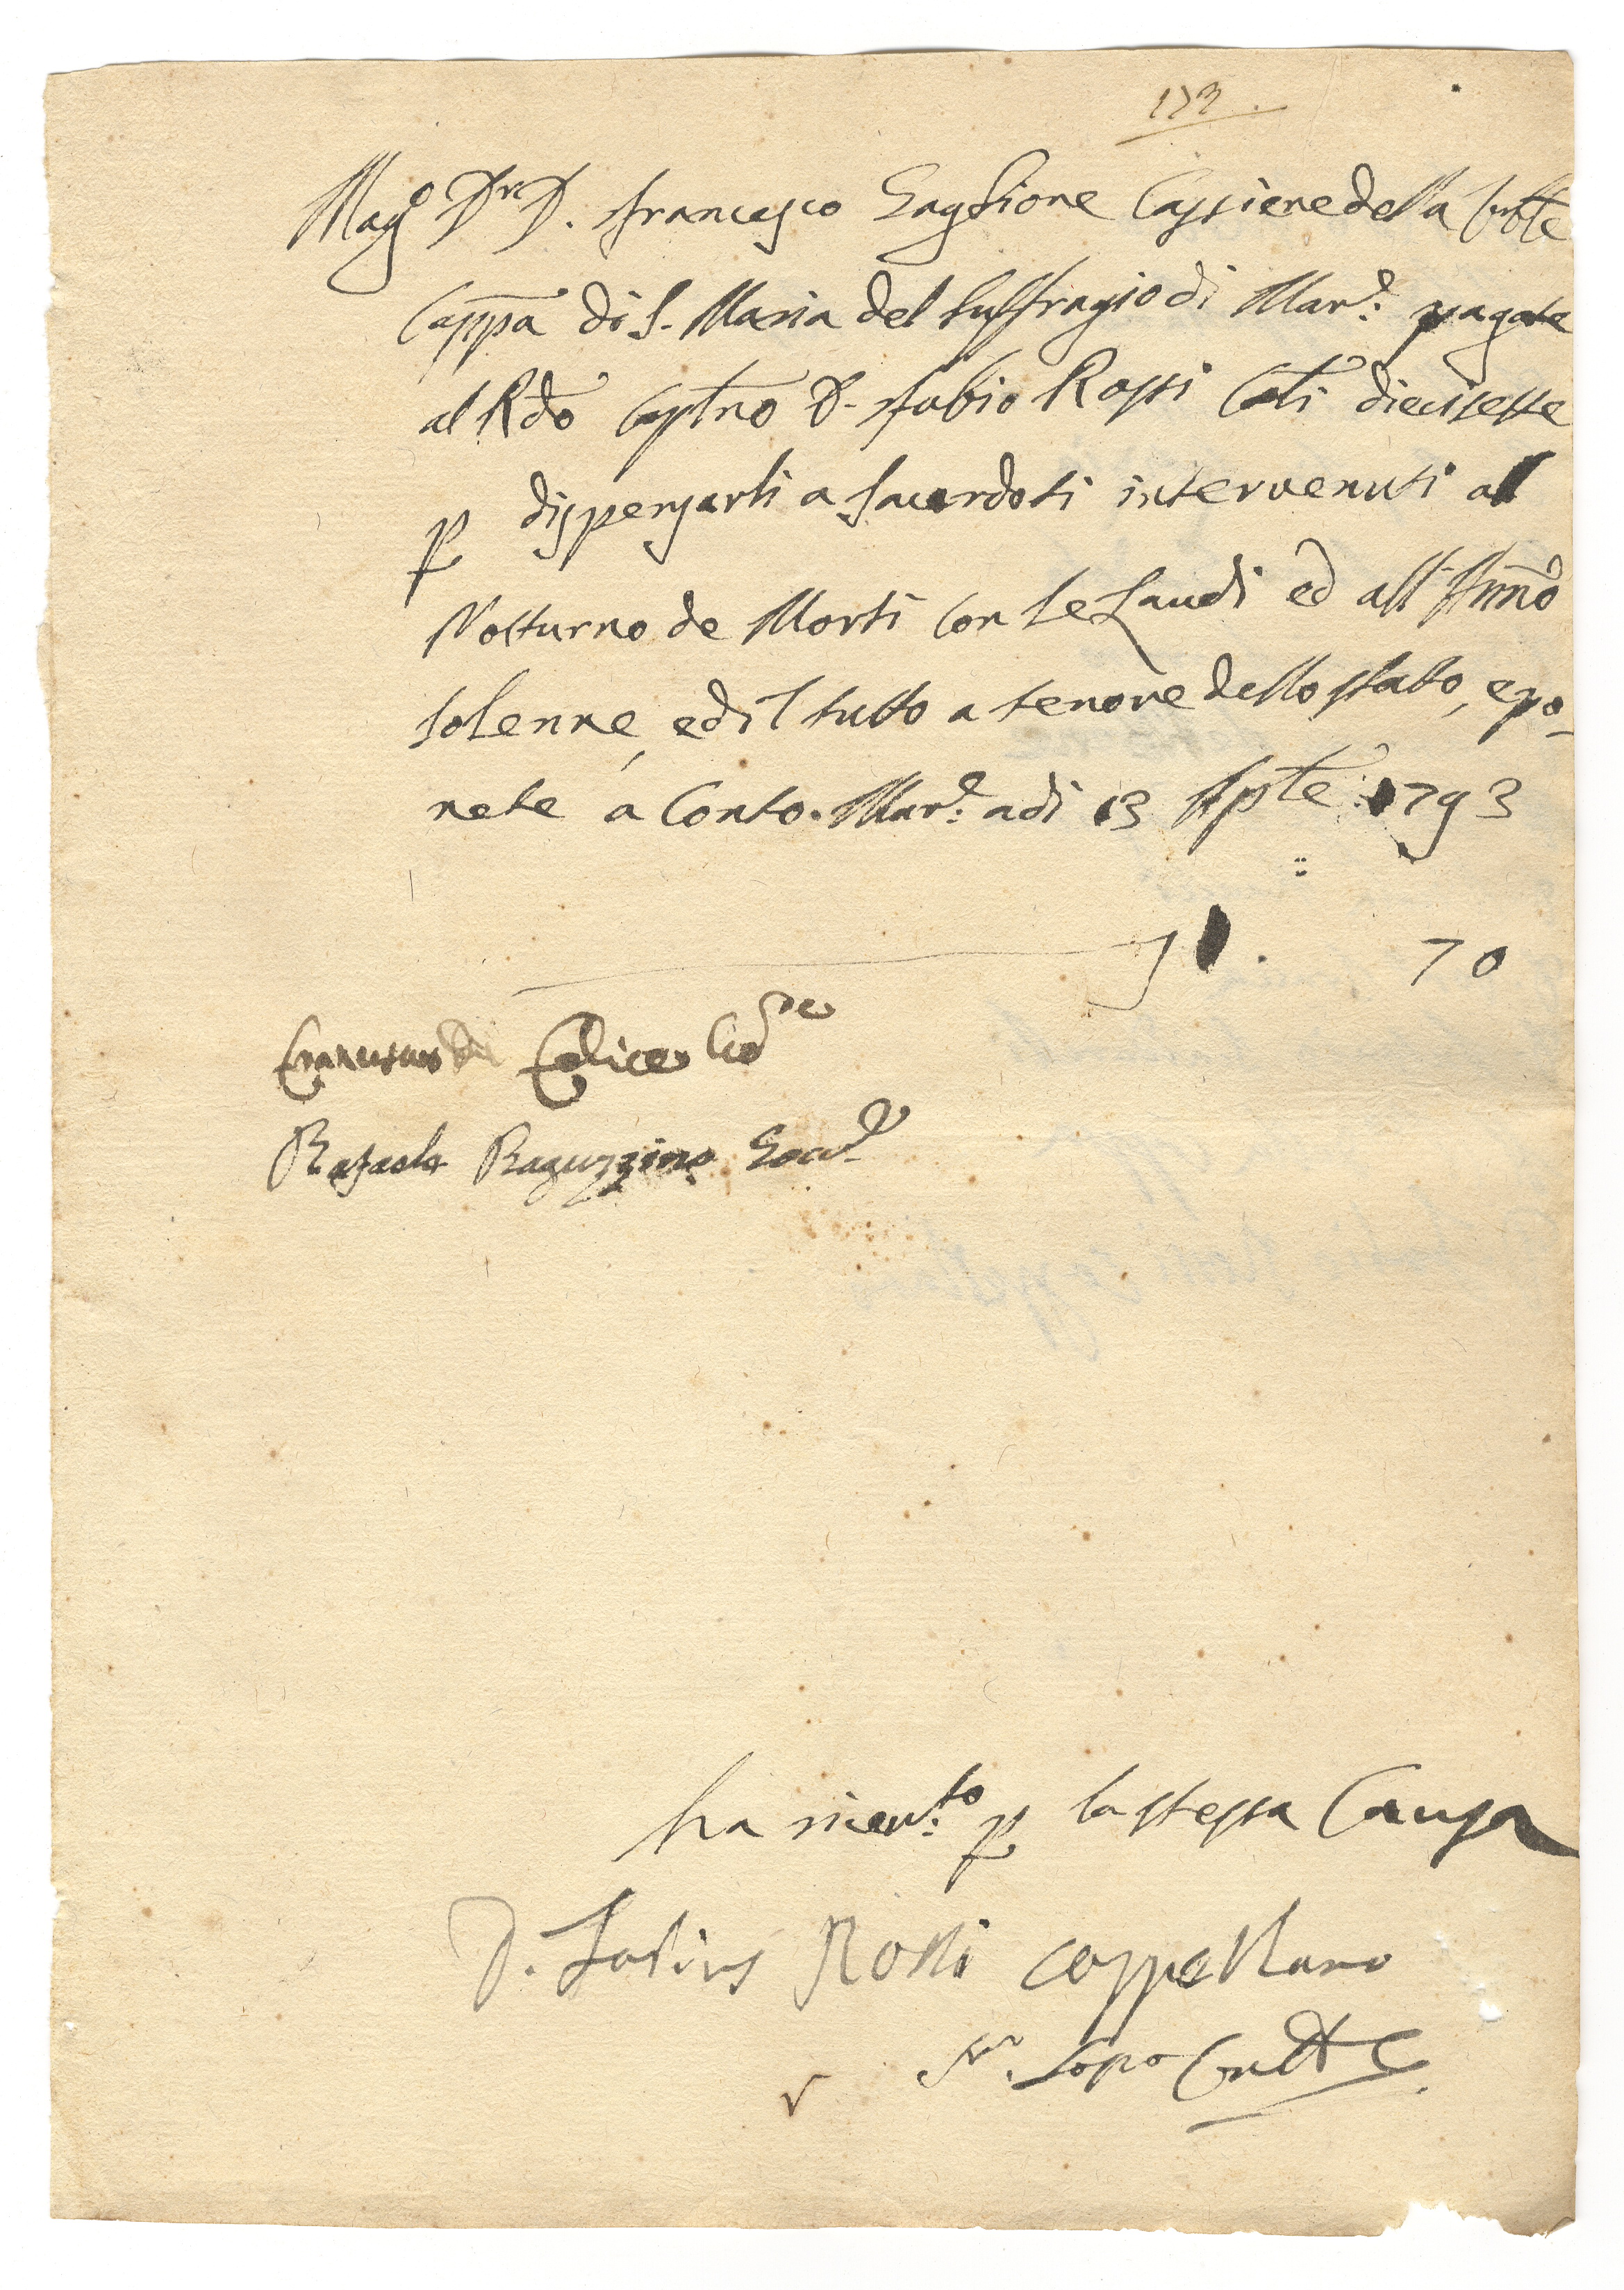 173
Mag.º Dr. D. Francesco Gaglione Cassiere della
Cappa di S. Maria del Suffragio di Mar.e: pagate
al Rdo Caplno D. Fabio Rossi Cti diecisette
p dispensarli a Sacerdoti intervenuti al
Notturno de Morti con le Laudi ed all'
solenne, ed il tutto a tenore dello stato, e po-
nete a Conto. Mar.e: adi 13 7bte: 1793
70
Franciscus di Felice
Rafaele Raguzzino
ha ricev:to p la stessa Causa
D. Fabius Rossi Cappellano